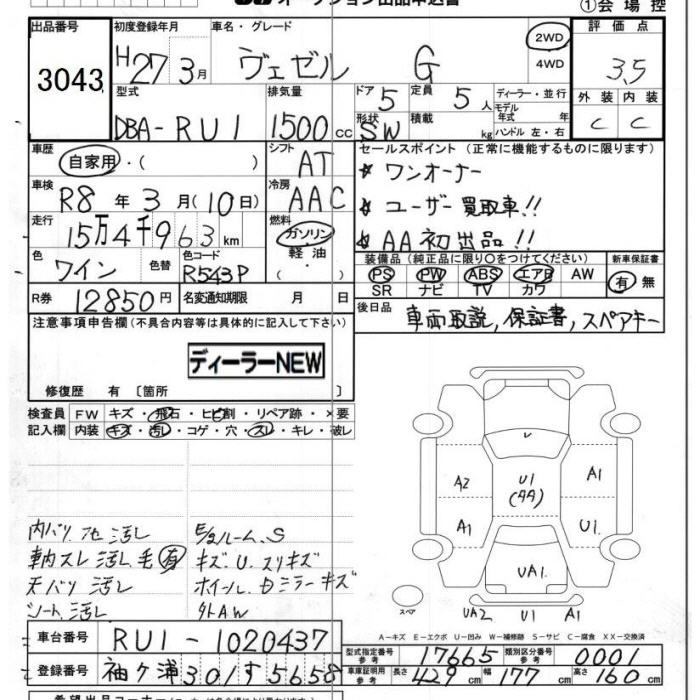 オークション出品申込書
①会場控
出品番号
3043
初度登録年月
H27 3月
車名・グレード
ヴェゼル G
2WD
4WD
評価点
3.5
外装 内装
C C
型式
DBA-RU1
排気量
1500cc
ドア 5
形状 SW
定員 5人
積載 kg
ディーラー・並行
モデル年式 年
ハンドル 左・右
車歴
自家用・( )
シフト
AT
車検
R8年3月(10日)
冷房
AAC
走行
15万4千963km
燃料
ガソリン
軽油
( )
色
ワイン
色替
色コード
R543P
R券 12850円
名変通知期限 月 日
セールスポイント (正常に機能するものに限ります)
★ ワンオーナー
★ ユーザー買取車!!
★ AA初出品!!
装備品(純正品に限り○をつけてください)
PS PW ABS エアB AW
SR ナビ TV カワ
新車保証書
有 無
後日品
車両取説, 保証書, スペアキー
注意事項申告欄(不具合内容等は具体的に記入して下さい)
ディーラーNEW
修復歴 有 〔箇所 〕
検査員 FW キズ・飛石・ヒビ割・リペア跡・×要
記入欄 内装 キズ・汚レ・コゲ・穴・スレ・キレ・破レ
内バリ 他 汚レ
車内スレ 汚レ 毛有
天バリ 汚レ
シート汚レ
E/gルーム.S
キズ.U.スリキズ
ホイール.ドミラーキズ
外AW
U1
(AA)
A2
A1
A1
U1.
UA1.
UA2 U1 A1
スペア
A-キズ E-エクボ U-凹み W-補修跡 S-サビ C-腐食 XX-交換済
車台番号 RU1-1020437
登録番号 袖ヶ浦301す5658
型式指定番号 参考 17665
類別区分番号 参考 0001
車庫証明用 参考 長さ 429cm 幅 177cm 高さ 160cm